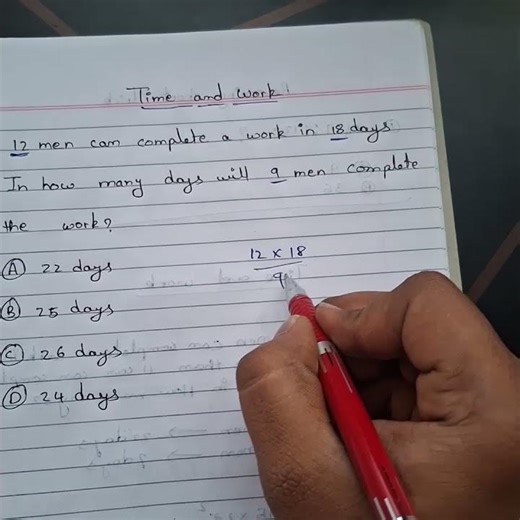 Time and work
12 men can complete a work in 18 days
In how many days will 9 men complete
the work?
12 x 18
9
A 22 days
B 25 days
C 26 days
D 24 days